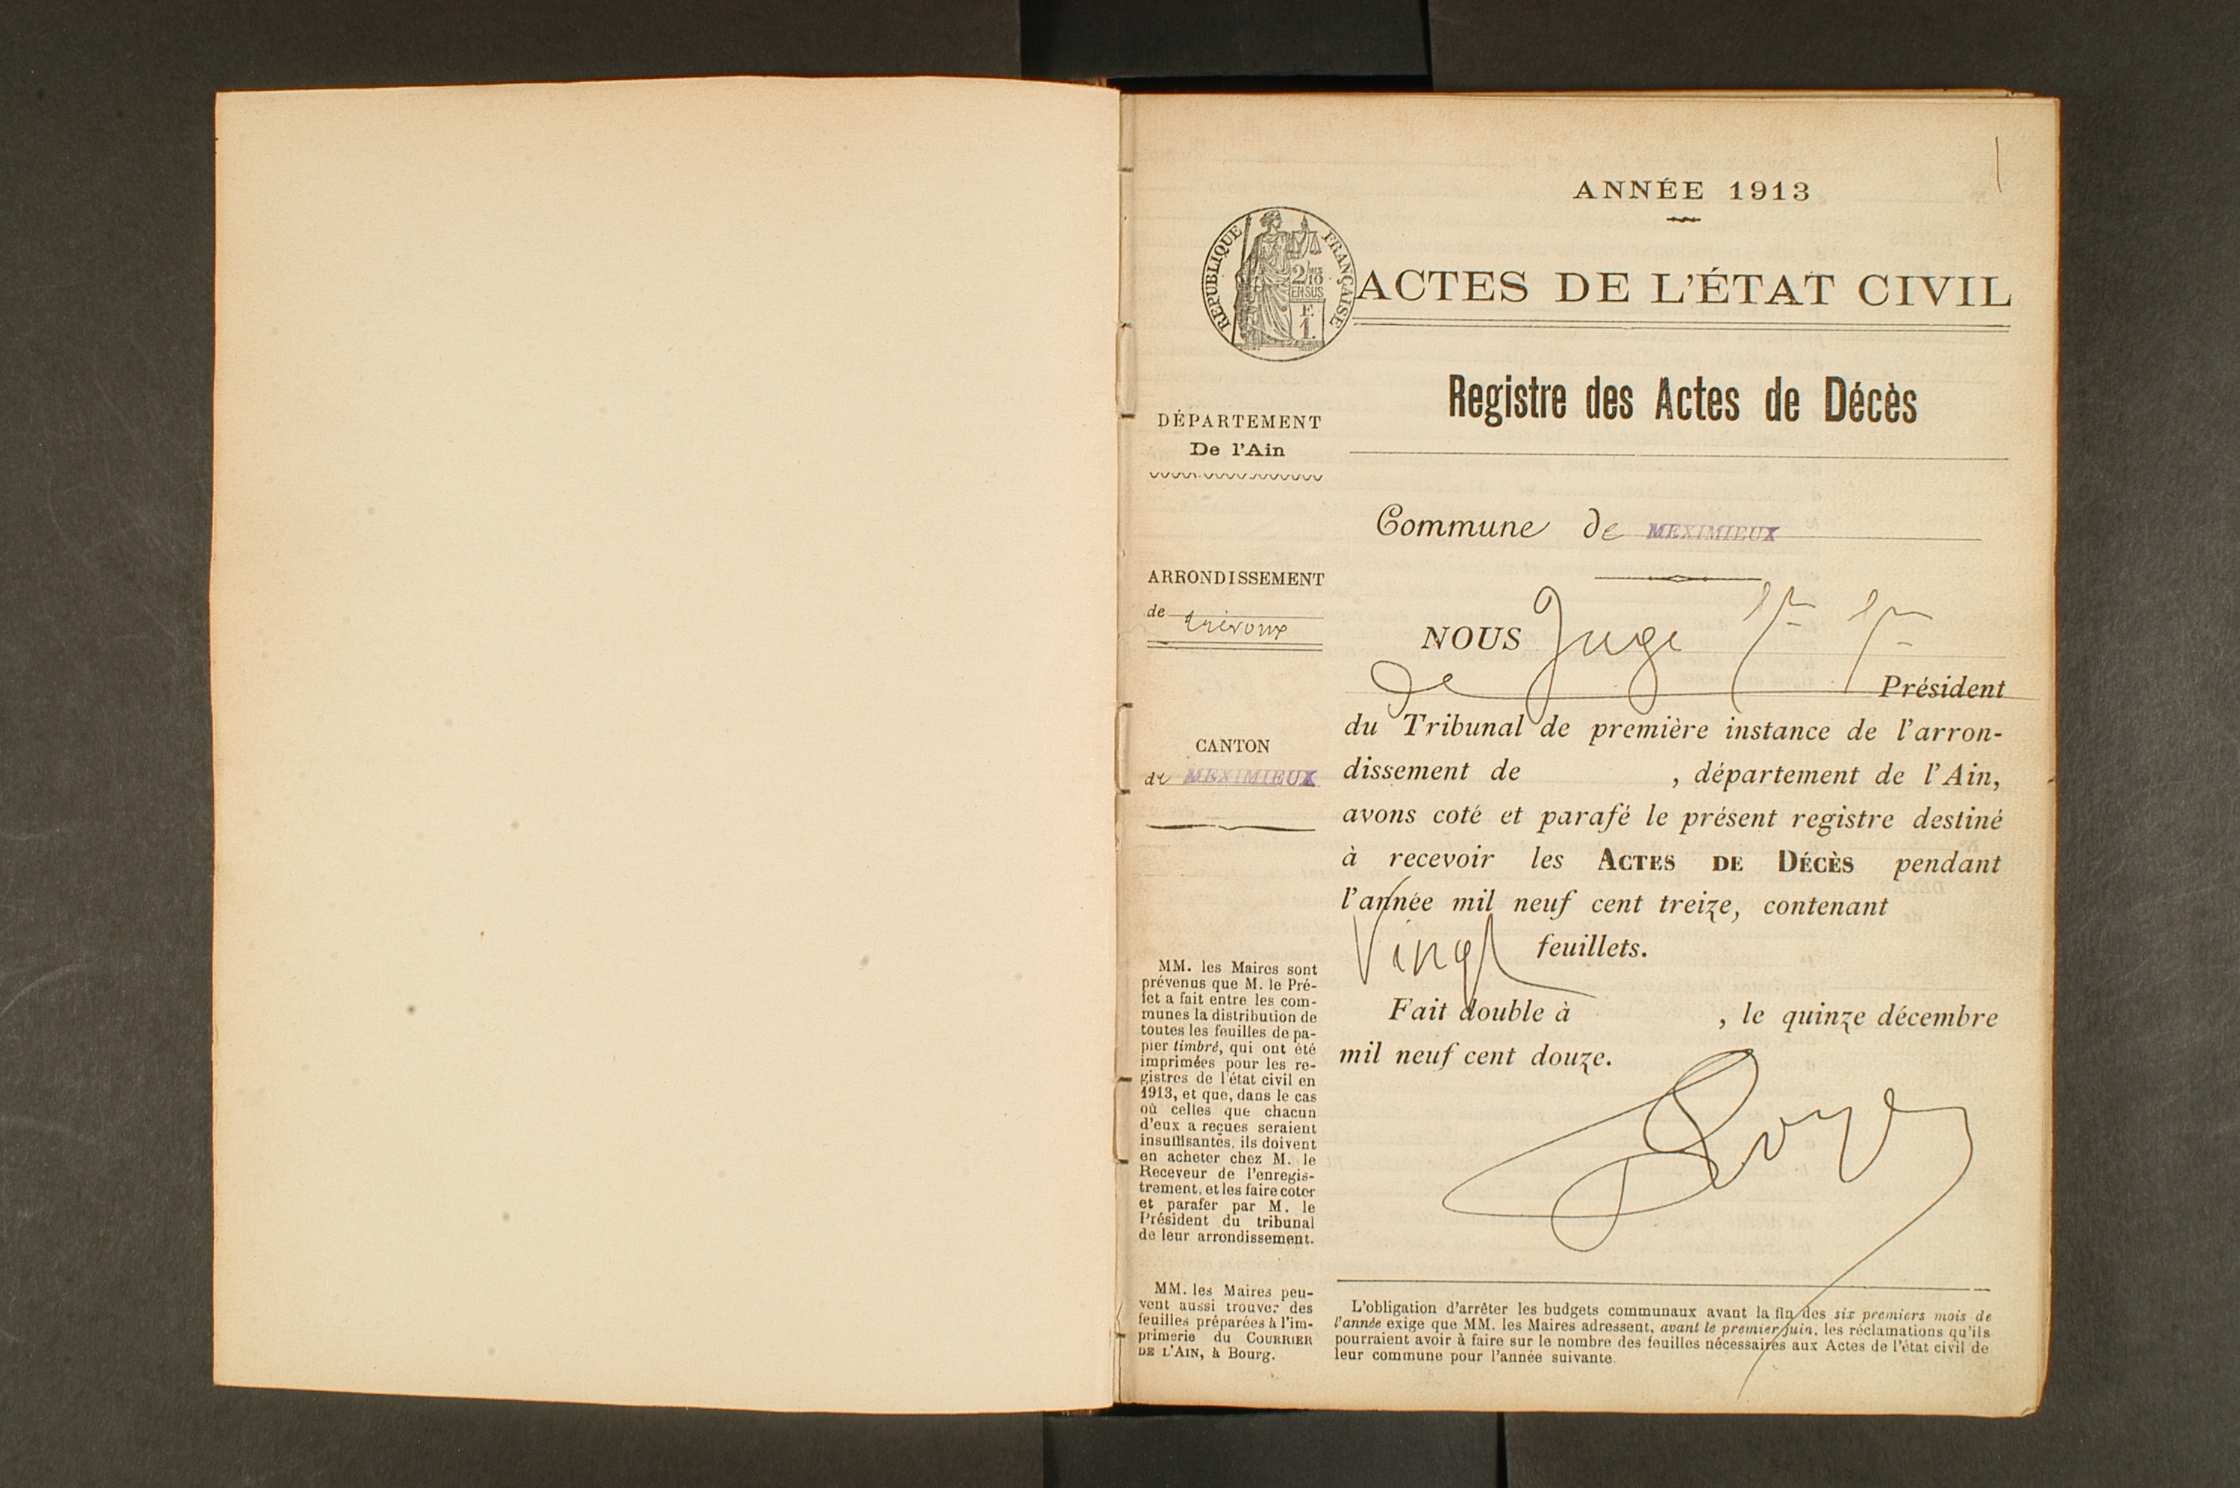 1
ANNÉE 1913
RÉPUBLIQUE FRANÇAISE
2/10
EN SUS
F.
1.
ACTES DE L'ÉTAT CIVIL
Registre des Actes de Décès
DÉPARTEMENT
De l'Ain
Commune de MEXIMIEUX
ARRONDISSEMENT
de Trévoux
CANTON
de MEXIMIEUX
NOUS Juge
de Président
du Tribunal de première instance de l'arron-
dissement de , département de l'Ain,
avons coté et parafé le présent registre destiné
à recevoir les ACTES DE DÉCÈS pendant
l'année mil neuf cent treize, contenant
Vingt feuillets.
Fait double à , le quinze décembre
mil neuf cent douze.
MM. les Maires sont
prévenus que M. le Pré-
fet a fait entre les com-
munes la distribution de
toutes les feuilles de pa-
pier timbré, qui ont été
imprimées pour les re-
gistres de l'état civil en
1913, et que, dans le cas
où celles que chacun
d'eux a reçues seraient
insuffisantes, ils doivent
en acheter chez M. le
Receveur de l'enregis-
trement, et les faire coter
et parafer par M. le
Président du tribunal
de leur arrondissement.
MM. les Maires peu-
vent aussi trouver des
feuilles préparées à l'im-
primerie du COURRIER
DE L'AIN, à Bourg.
L'obligation d'arrêter les budgets communaux avant la fin des six premiers mois de
l'année exige que MM. les Maires adressent, avant le premier juin, les réclamations qu'ils
pourraient avoir à faire sur le nombre des feuilles nécessaires aux Actes de l'état civil de
leur commune pour l'année suivante.